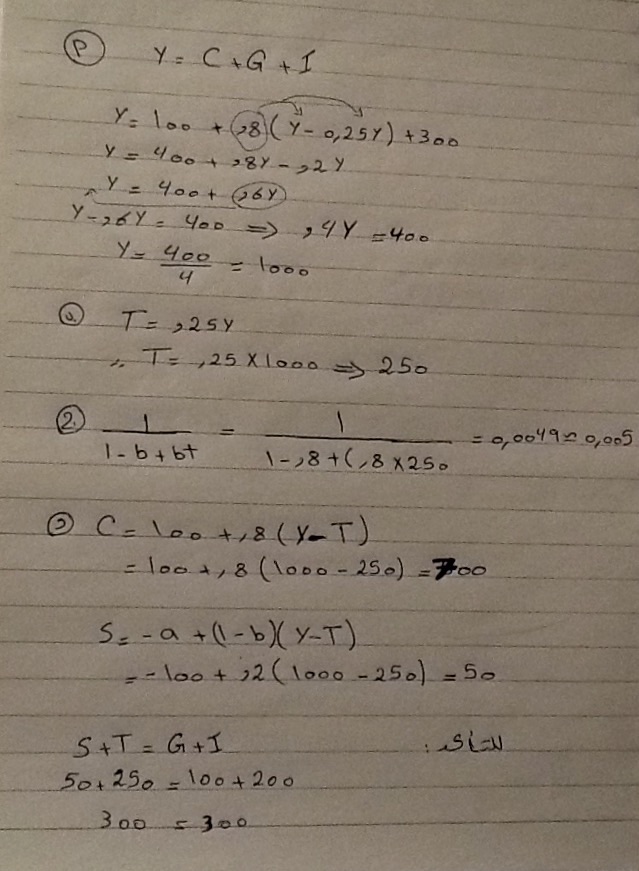 Ⓟ Y = C + G + I
Y = 100 + ,8 (Y - 0,25Y) + 300
Y = 400 + ,8Y - ,2Y
Y = 400 + ,6Y
Y - ,6Y = 400 ⇒ ,4Y = 400
Y = 400/,4 = 1000
T = ,25Y
∴ T = ,25 X 1000 ⇒ 250
② 1/(1 - b + bt) = 1/(1 - ,8 + (,8 X 250 = 0,0049 ≈ 0,005
C = 100 + ,8 (Y - T)
= 100 + ,8 (1000 - 250) = 700
S = -a + (1 - b)(Y - T)
= -100 + ,2 (1000 - 250) = 50
للتأكد :
S + T = G + I
50 + 250 = 100 + 200
300 = 300